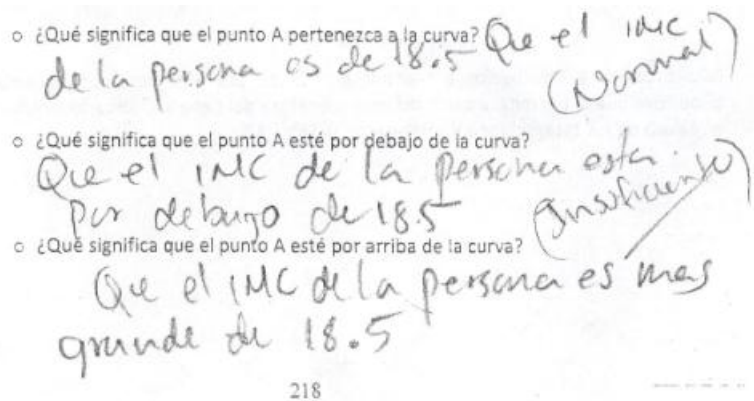 o ¿Qué significa que el punto A pertenezca a la curva? Que el IMC
de la persona es de 18.5 (Normal)
o ¿Qué significa que el punto A esté por debajo de la curva?
Que el IMC de la persona esta
por debajo de 18.5 (Insuficiente)
o ¿Qué significa que el punto A esté por arriba de la curva?
Que el IMC de la persona es mas
grande de 18.5
218